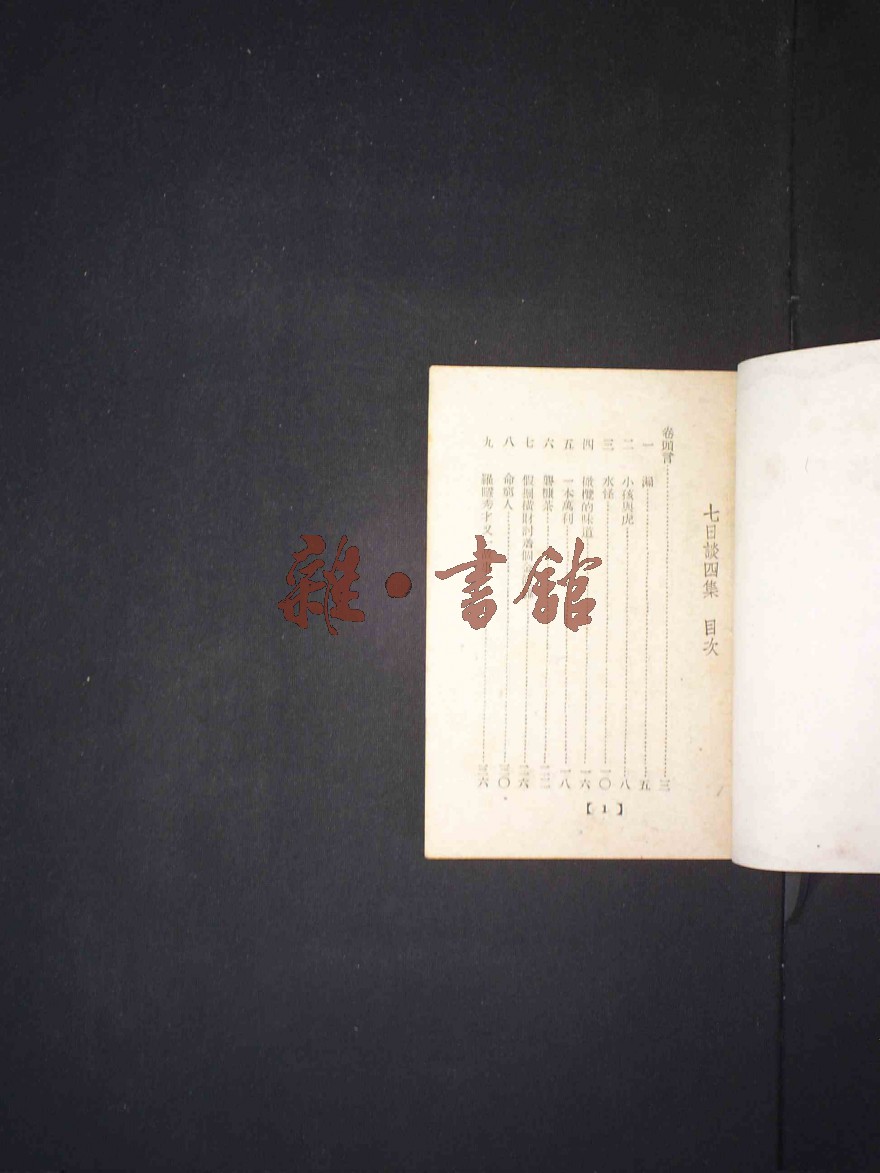 七日談四集 目次
卷頭言 三
一 漏 五
二 小孩與虎 八
三 水怪 一〇
四 橄欖的味道 一六
五 一本萬利 一八
六 茶 二二
七 假掘橫財 個 二六
八 命窮人 三〇
九 秀才又 三六
【1】
雜·書館